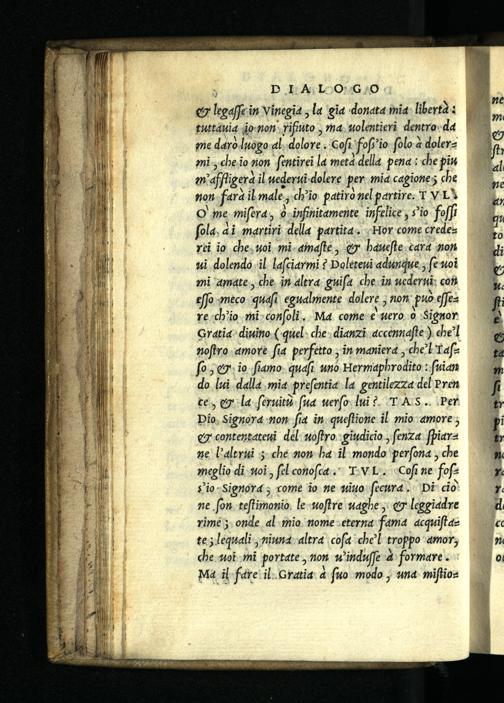 DIALOGO
& legasse in Vinegia, la gia donata mia libertà:
tuttauia io non rifiuto, ma uolentieri dentro da
me darò luogo al dolore. Cosi foss'io solo à doler=
mi, che io non sentirei la metà della pena: che piu
m'affligerà il uederui dolere per mia cagione; che
non farà il male, ch'io patirò nel partire. TVL.
O' me misera, ò infinitamente infelice, s'io fossi
sola à i martiri della partita. Hor come crede=
rei io che uoi mi amaste, & haueste cara non
ui dolendo il lasciarmi? Doleteui adunque, se uoi
mi amate, che in altra guisa che in uederui con
esso meco quasi egualmente dolere, non può esse=
re ch'io mi consoli. Ma come è uero ò Signor
Gratia diuino (quel che dianzi accennaste) che'l
nostro amore sia perfetto, in maniera, che'l Tas=
so, & io siamo quasi uno Hermaphrodito: suian
do lui dalla mia presentia la gentilezza del Pren
ce, & la seruitù sua uerso lui? TAS. Per
Dio Signora non sia in questione il mio amore,
& contentateui del uostro giudicio, senza spiar=
ne l'altrui; che non ha il mondo persona, che
meglio di uoi, sel conosca. TVL. Cosi ne fos=
s'io Signora, come io ne uiuo secura. Di ciò
ne son testimonio le uostre uaghe, & leggiadre
rime; onde al mio nome eterna fama acquista=
te; lequali, niuna altra cosa che'l troppo amor,
che uoi mi portate, non u'indusse à formare.
Ma il fare il Gratia à suo modo, una mistio=